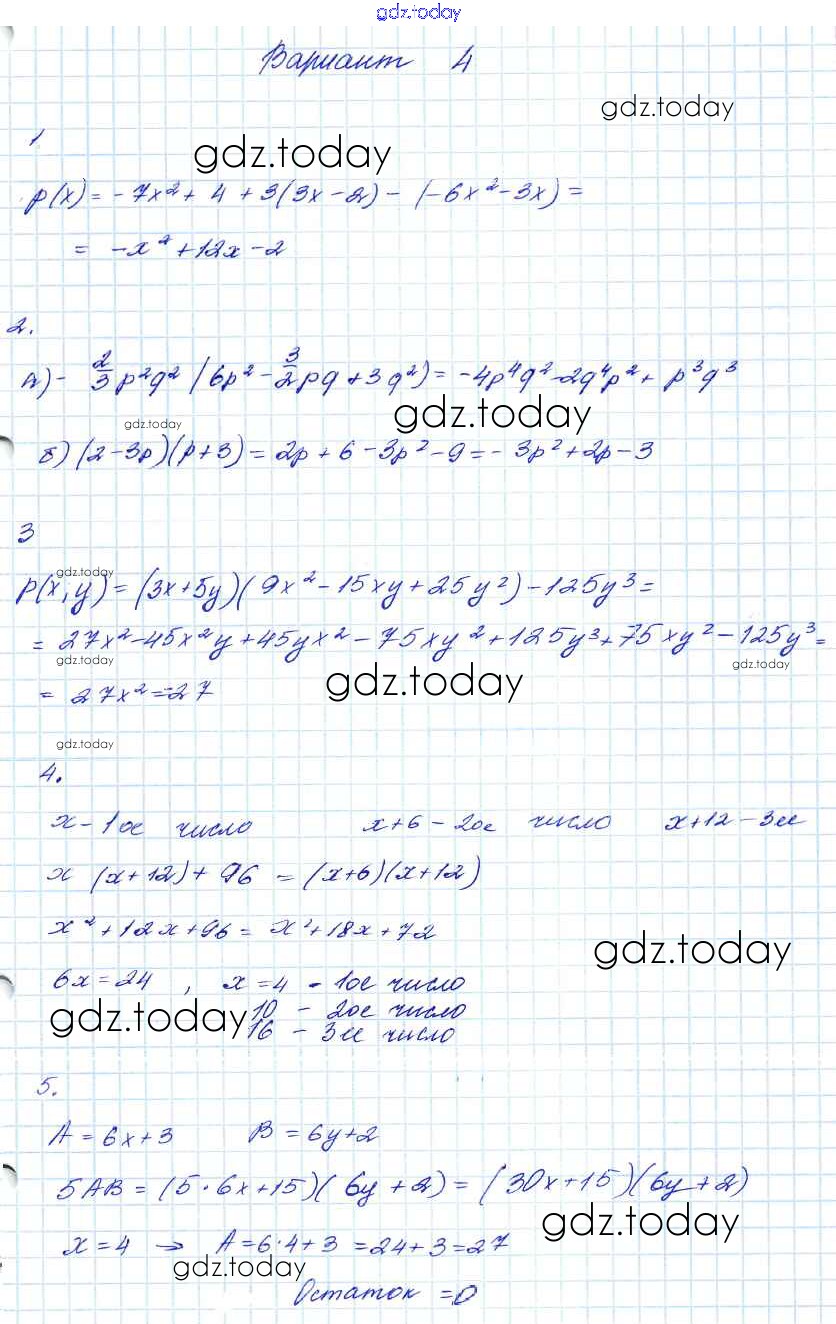 gdz.today
Вариант 4
gdz.today
1
gdz.today
p(x) = - 7x² + 4 + 3(3x - 2) - (-6x² - 3x) =
= -x² + 12x - 2
2.
а) - 2/3 p²q² (6p² - 3/2 pq + 3q²) = -4p⁴q² - 2q⁴p² + p³q³
gdz.today
gdz.today
б) (2 - 3p)(p + 3) = 2p + 6 - 3p² - 9 = - 3p² + 2p - 3
3
gdz.today
p(x, y) = (3x + 5y)(9x² - 15xy + 25y²) - 125y³ =
= 27x² - 45x²y + 45yx² - 75xy² + 125y³ + 75xy² - 125y³ =
gdz.today
gdz.today
gdz.today
= 27x² = -27
gdz.today
4.
x - 1ое число x+6 - 2ое число x+12 - 3ее
x (x + 12) + 96 = (x+6)(x+12)
x² + 12x + 96 = x² + 18x + 72
gdz.today
6x = 24 , x = 4 - 1ое число
gdz.today
10 - 2ое число
16 - 3ее число
5.
A = 6x + 3 B = 6y + 2
5AB = (5·6x + 15)(6y + 2) = (30x + 15)(6y + 2)
gdz.today
x = 4 → A = 6·4 + 3 = 24 + 3 = 27
gdz.today
Остаток = 0